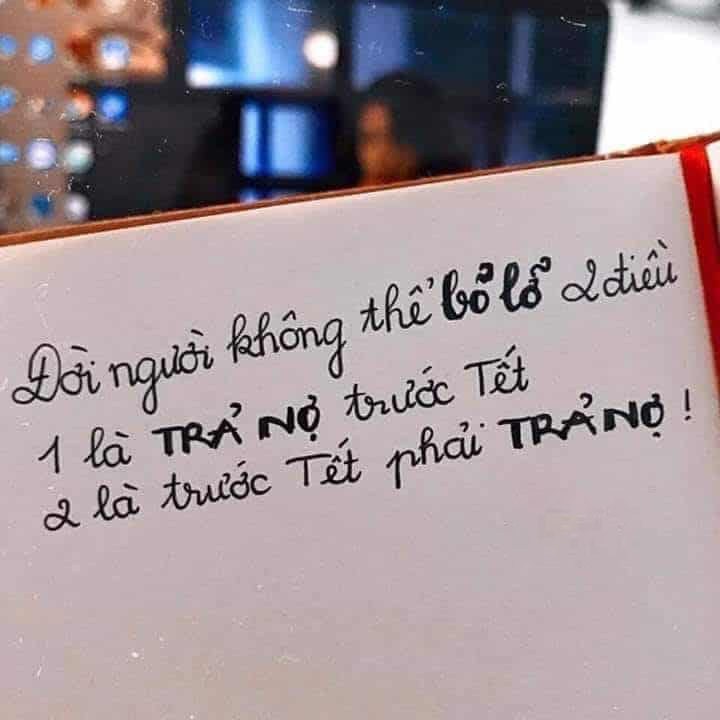 Đời người không thể bỏ lỡ 2 điều
1 là TRẢ NỢ trước Tết
2 là trước Tết phải TRẢ NỢ !